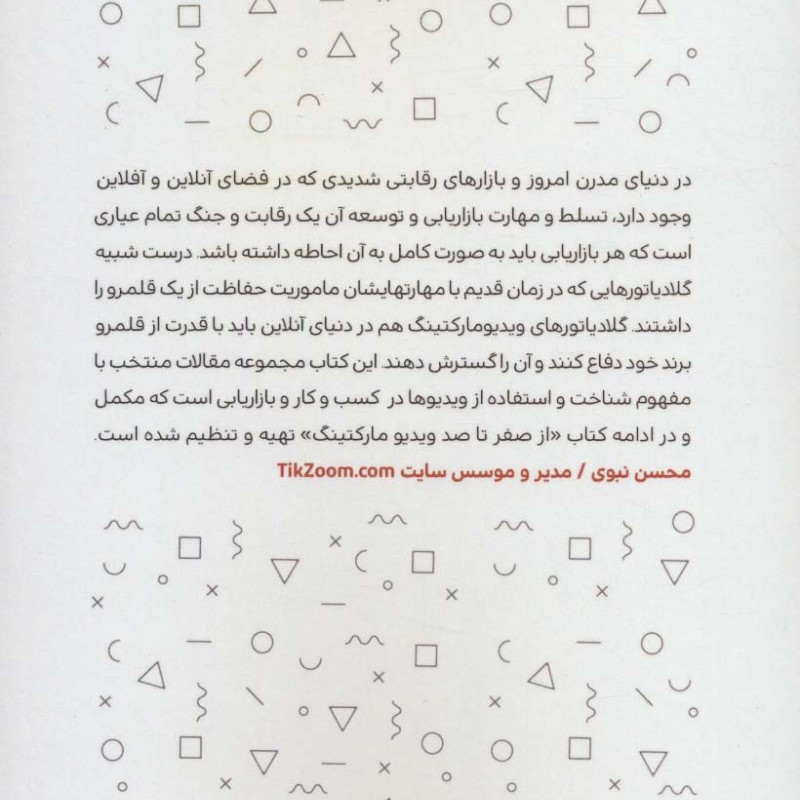 در دنیای مدرن امروز و بازارهای رقابتی شدیدی که در فضای آنلاین و آفلاین
وجود دارد، تسلط و مهارت بازاریابی و توسعه آن یک رقابت و جنگ تمام عیاری
است که هر بازاریابی باید به صورت کامل به آن احاطه داشته باشد. درست شبیه
گلادیاتورهایی که در زمان قدیم با مهارتهایشان ماموریت حفاظت از یک قلمرو را
داشتند. گلادیاتورهای ویدیومارکتینگ هم در دنیای آنلاین باید با قدرت از قلمرو
برند خود دفاع کنند و آن را گسترش دهند. این کتاب مجموعه مقالات منتخب با
مفهوم شناخت و استفاده از ویدیوها در کسب و کار و بازاریابی است که مکمل
و در ادامه کتاب «از صفر تا صد ویدیو مارکتینگ» تهیه و تنظیم شده است.
محسن نبوی / مدیر و موسس سایت TikZoom.com